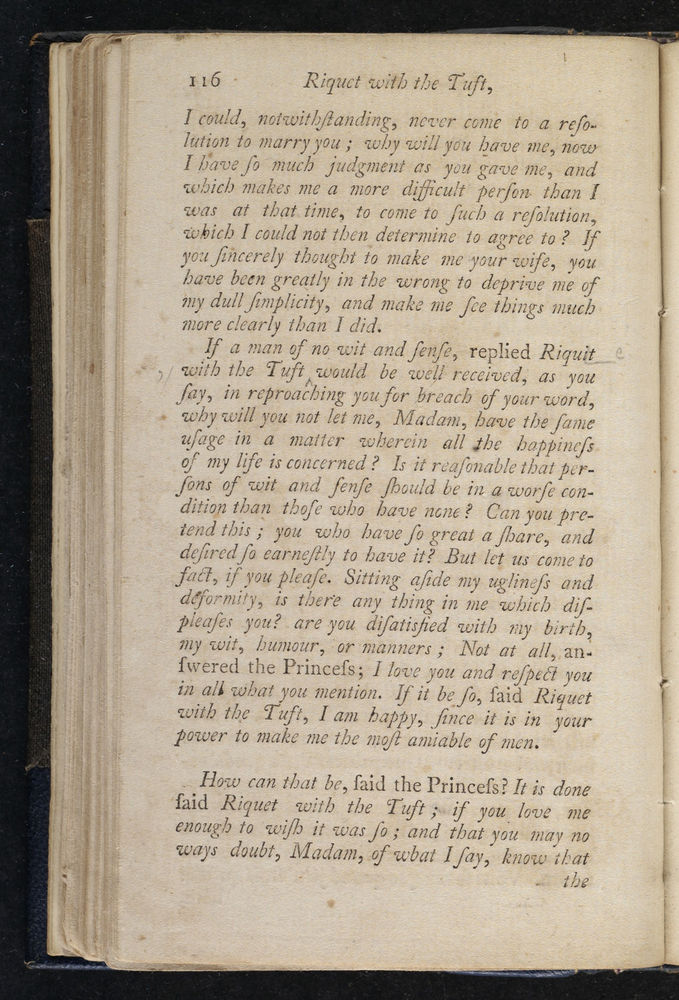 116 Riquet with the Tuft,
I could, notwithſtanding, never come to a reſo-
lution to marry you ; why will you have me, now
I have ſo much judgment as you gave me, and
which makes me a more difficult perſon than I
was at that time, to come to ſuch a reſolution,
which I could not then determine to agree to ? If
you ſincerely thought to make me your wife, you
have been greatly in the wrong to deprive me of
my dull ſimplicity, and make me ſee things much
more clearly than I did.
If a man of no wit and ſenſe, replied Riquit
with the Tuft would be well received, as you
ſay, in reproaching you for breach of your word,
why will you not let me, Madam, have the ſame
uſage in a matter wherein all the happineſs
of my life is concerned ? Is it reaſonable that per-
ſons of wit and ſenſe ſhould be in a worſe con-
dition than thoſe who have none ? Can you pre-
tend this ; you who have ſo great a ſhare, and
deſired ſo earneſtly to have it? But let us come to
fact, if you pleaſe. Sitting aſide my uglineſs and
deformity, is there any thing in me which diſ-
pleaſes you? are you diſatisfied with my birth,
my wit, humour, or manners ; Not at all, an-
ſwered the Princeſs; I love you and reſpect you
in all what you mention. If it be ſo, ſaid Riquet
with the Tuft, I am happy, ſince it is in your
power to make me the moſt amiable of men.
How can that be, ſaid the Princeſs? It is done
ſaid Riquet with the Tuft ; if you love me
enough to wiſh it was ſo ; and that you may no
ways doubt, Madam, of what I ſay, know that
the